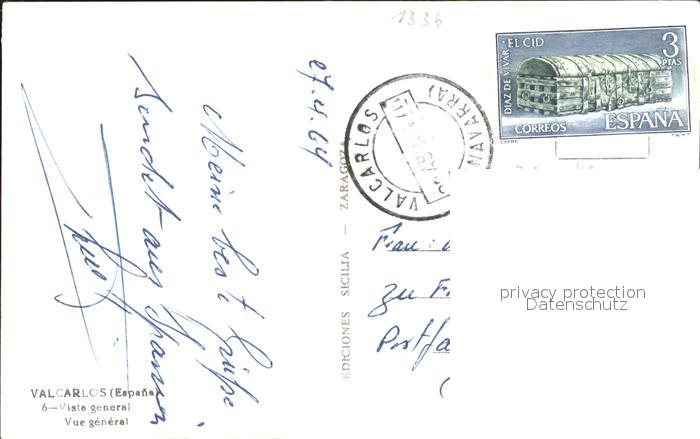 1336
DIAZ DE VIVAR · EL CID
3
PTAS
CORREOS
ESPAÑA
VALCARLOS
(NAVARRA)
27.4.64
Meine best Grüße
sendet aus Spanien
Frau:
zu F
Postfa
(
EDICIONES SICILIA — ZARAGOZA
VALCARLOS (España)
6—Vista general
Vue général
privacy protection
Datenschutz